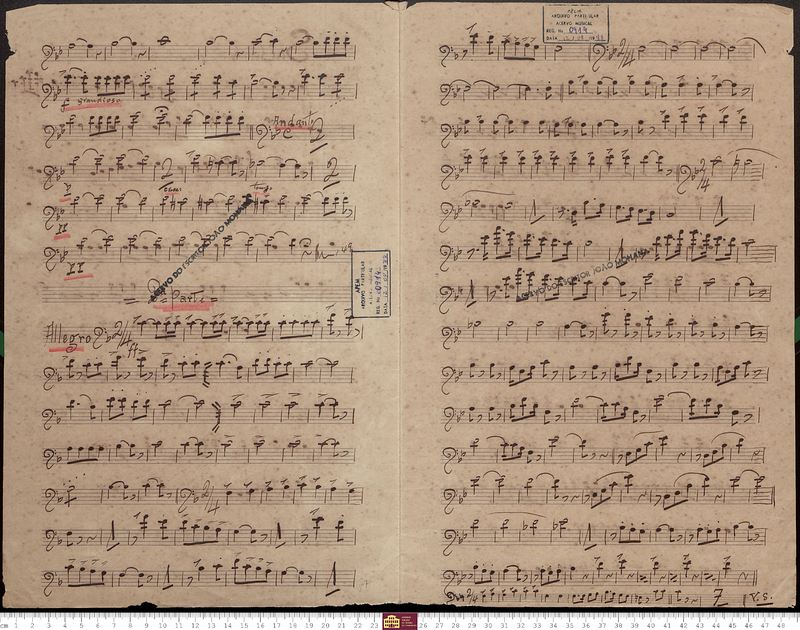 f grandioso
Andante
2
2
2
II
II
ACERVO DO ESCRITOR JOÃO MOHANA
2ª Parte =
Allegro 2/4
ff
2/4
APEM
ARQUIVO PARTICULAR
ACERVO MUSICAL
REG. No. 0914
DATA
APEM
ARQUIVO PARTICULAR
ACERVO MUSICAL
REG. No. 0914
DATA
2/4
2/4
ACERVO DO ESCRITOR JOÃO MOHANA
2/4
7
V.S.
cm 1 2 3 4 5 6 7 8 9 10 11 12 13 14 15 16 17 18 19 20 21 22 23 26 27 28 29 30 31 32 33 34 35 36 37 38 39 40 41 42 43 44 45 46 47 48